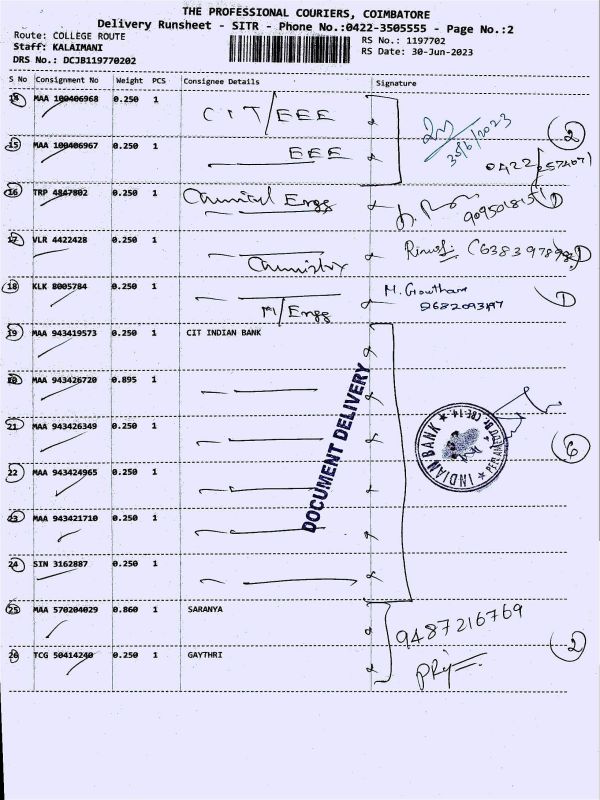 THE PROFESSIONAL COURIERS, COIMBATORE
Delivery Runsheet - SITR - Phone No.:0422-3505555 - Page No.:2
Route: COLLEGE ROUTE
RS No.: 1197702
Staff: KALAIMANI
RS Date: 30-Jun-2023
DRS No.: DCJB119770202
S No Consignment No Weight PCS Consignee Details Signature
14 MAA 100406968 0.250 1 CIT/EEE
30/6/2023 2
15 MAA 100406967 0.250 1 EEE
16 TRP 4847802 0.250 1 Chemical Engg 1
17 VLR 4422428 0.250 1 Chemistry
18 KLK 8005784 0.250 1 M/Engg M. Gowtham 1
19 MAA 943419573 0.250 1 CIT INDIAN BANK
20 MAA 943426720 0.895 1
21 MAA 943426349 0.250 1 INDIAN BANK 6
22 MAA 943424965 0.250 1
DOCUMENT DELIVERY
23 MAA 943421710 0.250 1
24 SIN 3162887 0.250 1
25 MAA 570204029 0.860 1 SARANYA 9487216769
26 TCG 50414240 0.250 1 GAYTHRI 2